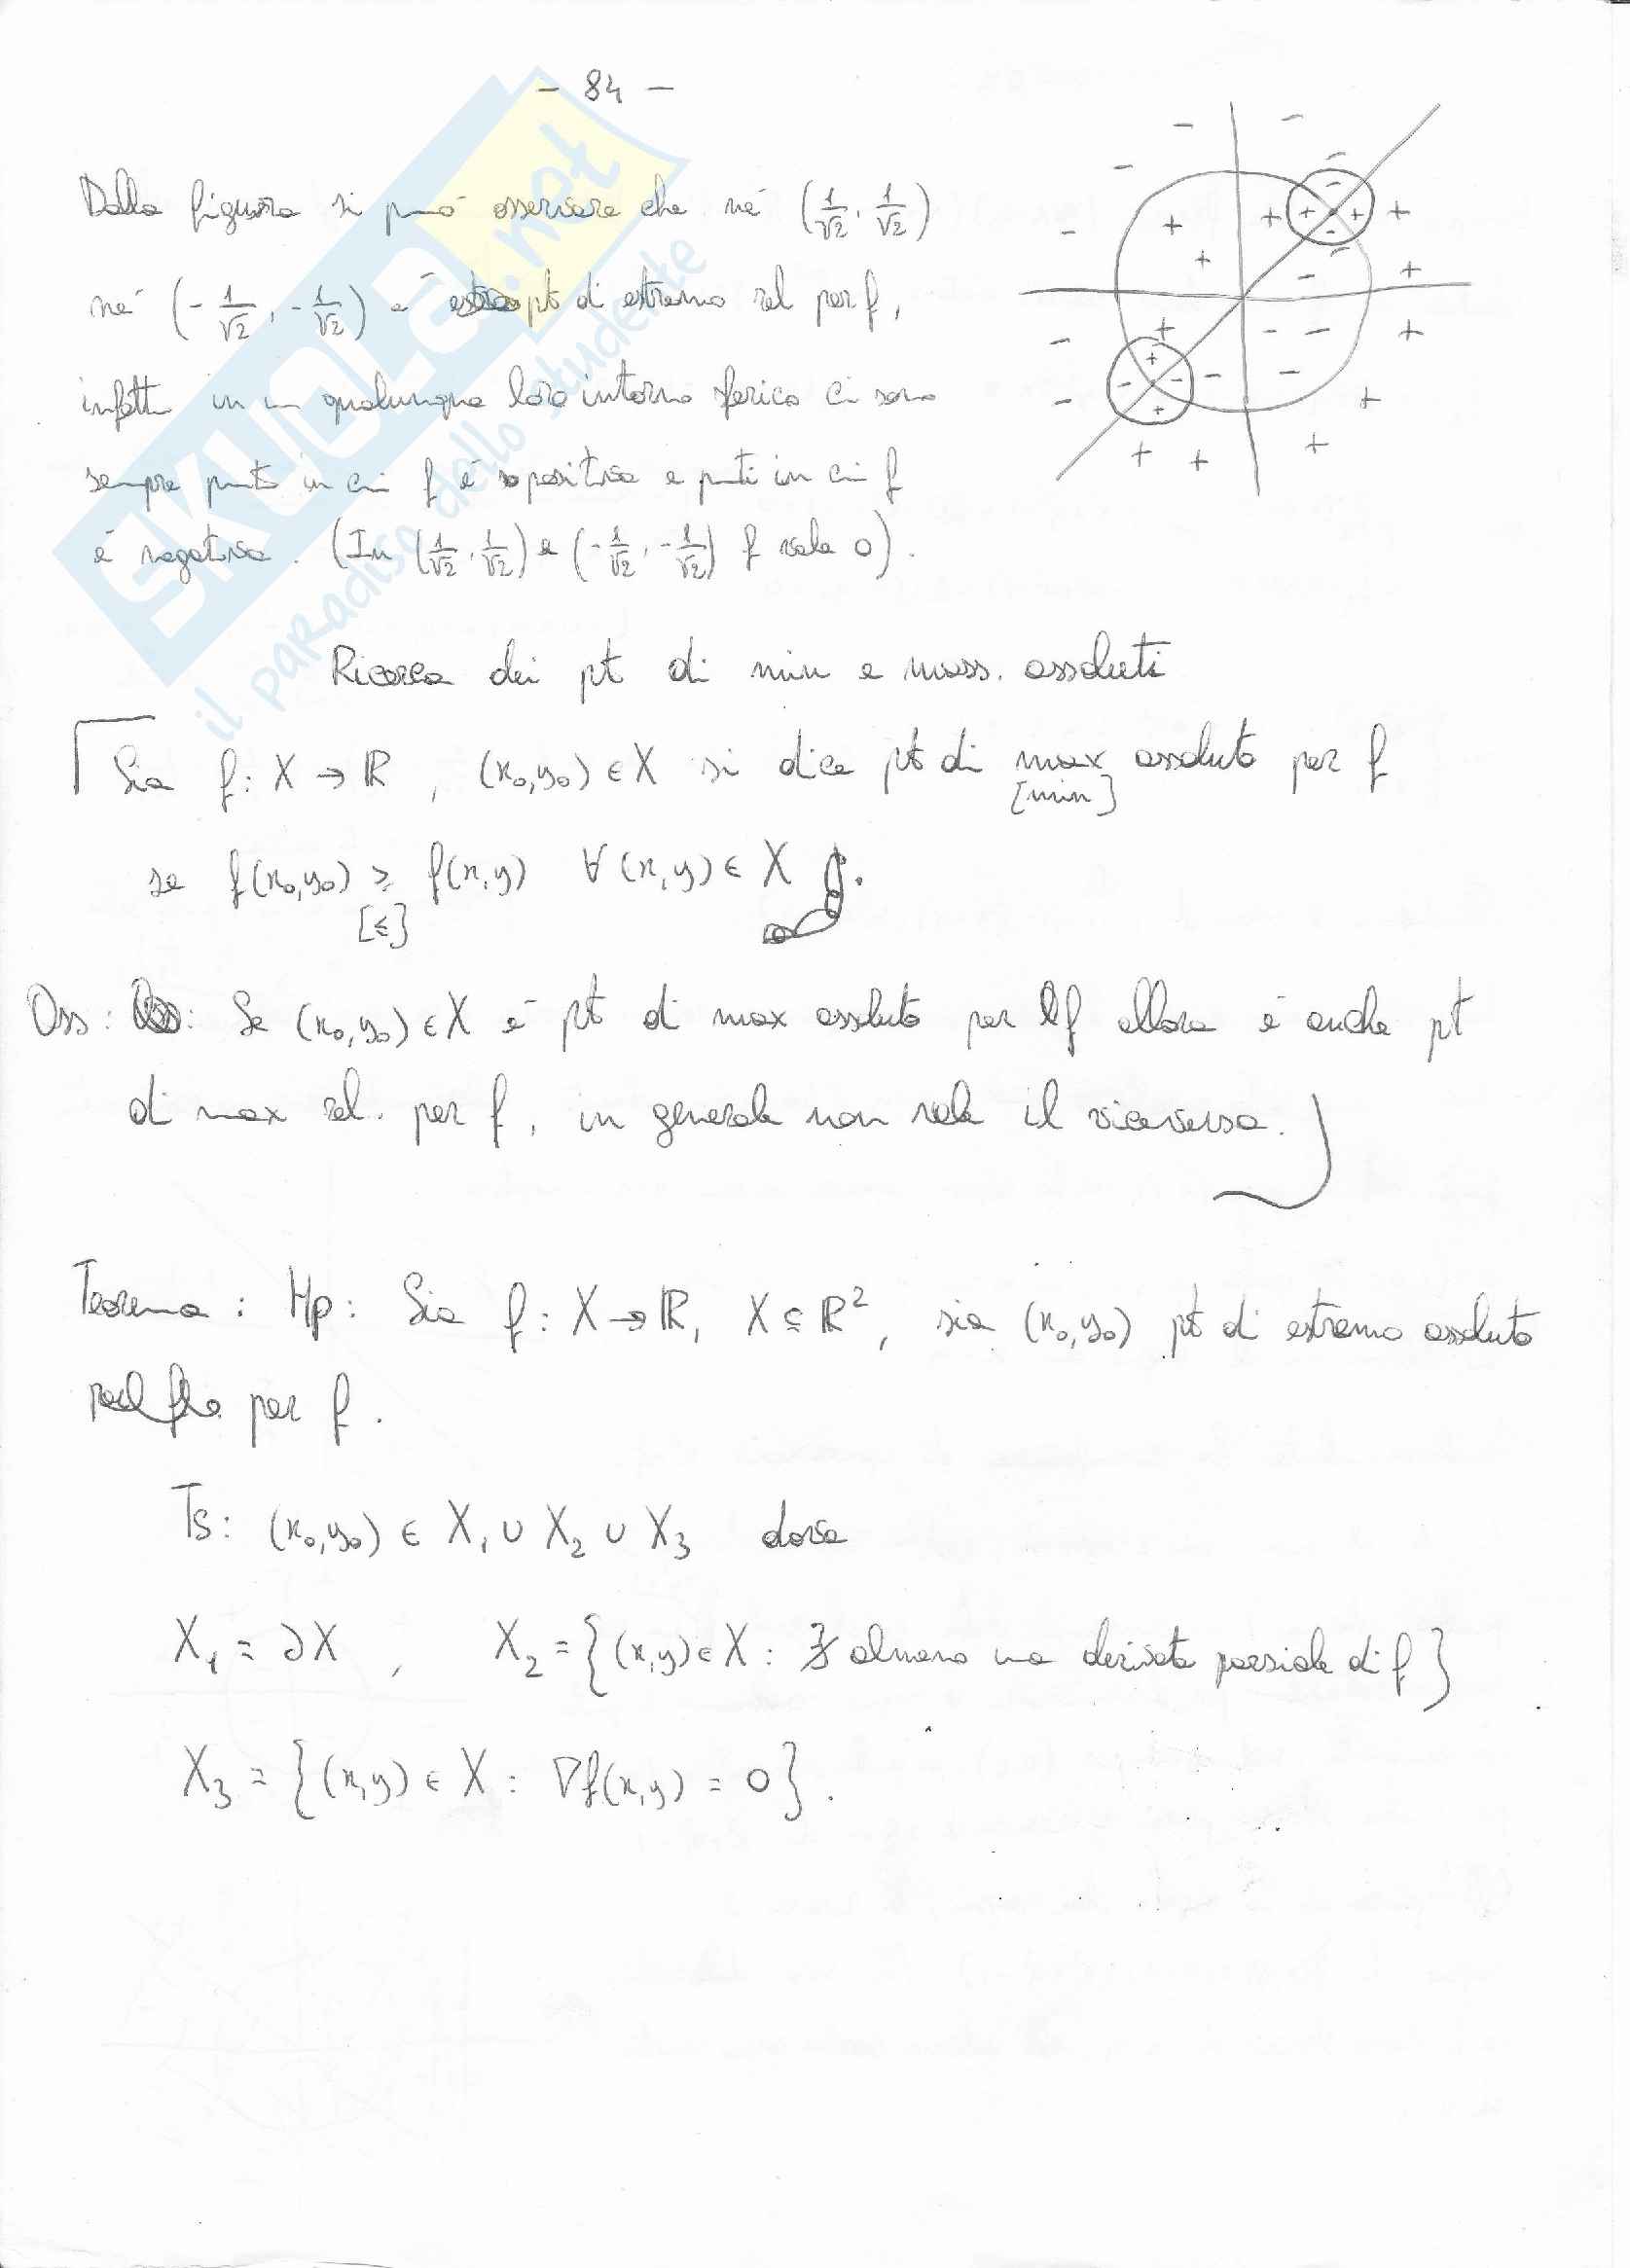 - 84 -
Dalla figura si può osservare che né (1/√2, 1/√2)
né (-1/√2, -1/√2) è pt di estremo rel per f,
infatti in un qualunque loro intorno sferico ci sono
sempre punti in cui f è positiva e punti in cui f
è negativa. (In (1/√2, 1/√2) e (-1/√2, -1/√2) f vale 0).
Ricerca dei pt di min e mass. assoluti
Sia f: X → ℝ, (x₀,y₀) ∈ X si dice pt di max assoluto per f
[min]
se f(x₀,y₀) ≥ f(x,y) ∀(x,y) ∈ X.
[≤]
Oss: Se (x₀,y₀) ∈ X è pt di max assoluto per f allora è anche pt
di max rel. per f, in generale non vale il viceversa.
Teorema: Hp: Sia f: X → ℝ, X ⊆ ℝ², sia (x₀,y₀) pt di estremo assoluto
per f.
Ts: (x₀,y₀) ∈ X₁ ∪ X₂ ∪ X₃ dove
X₁ = ∂X, X₂ = {(x,y) ∈ X: ∄ almeno una derivata parziale di f}
X₃ = {(x,y) ∈ X: ∇f(x,y) = 0}.
SKUOLA.net
il paradiso dello studente